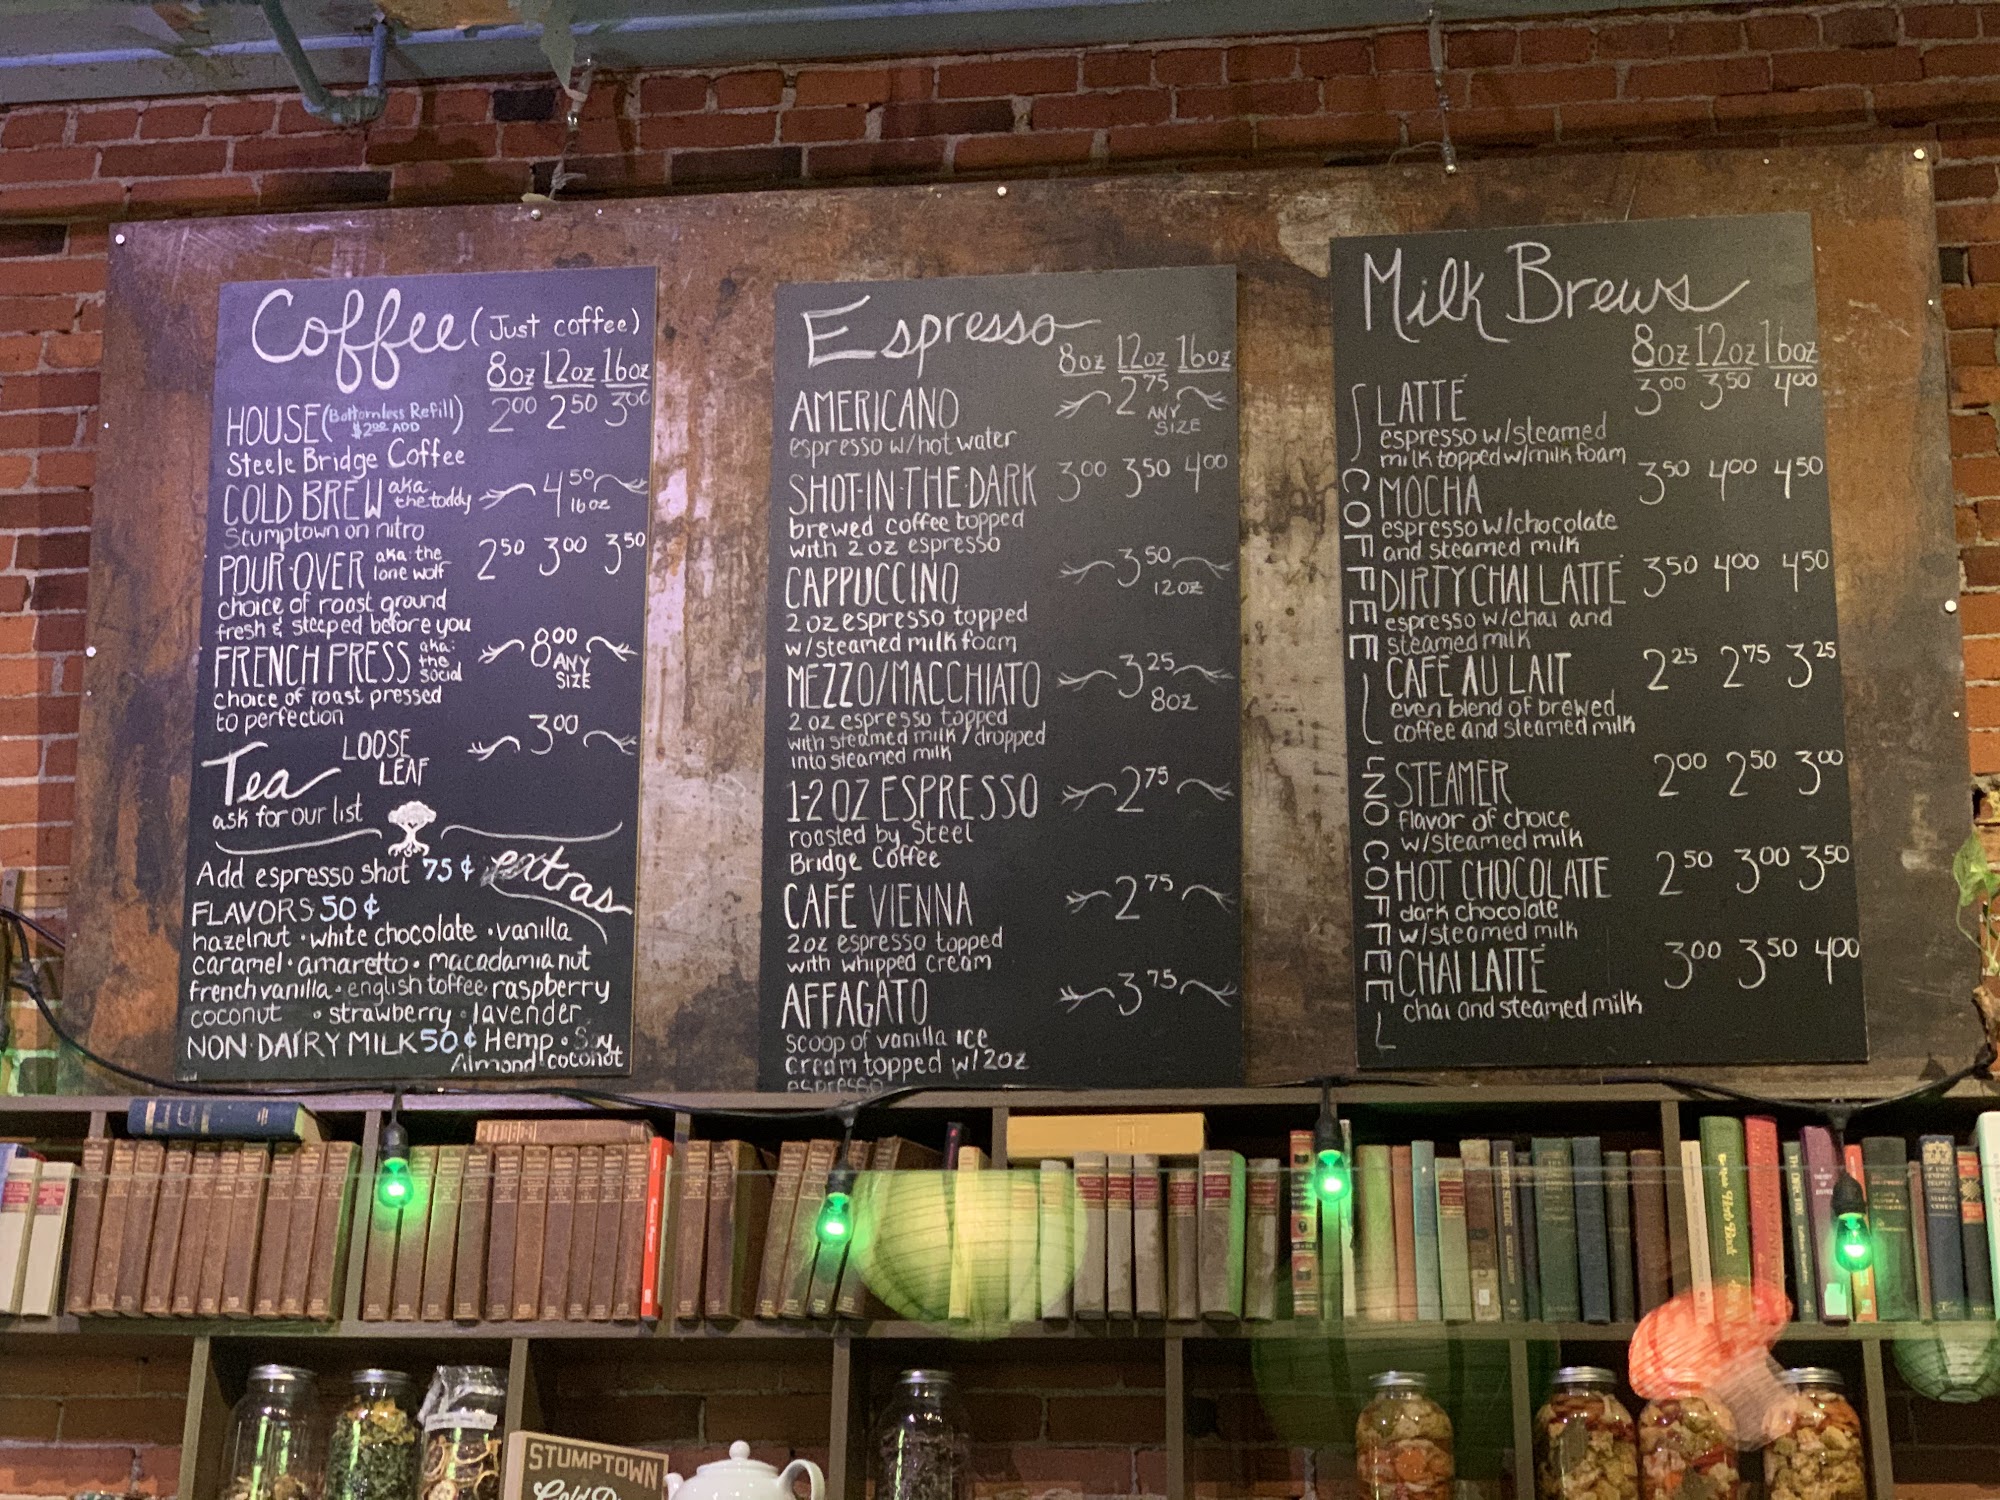 Coffee (Just coffee)
8oz 12oz 16oz
HOUSE (Bottomless Refill) 2.00 2.50 3.00
$2.00 ADD
Steele Bridge Coffee
COLD BREW aka: the toddy 4.50
16oz
Stumptown on nitro
POUR·OVER aka: the lone wolf 2.50 3.00 3.50
choice of roast ground
fresh & steeped before you
FRENCH PRESS aka: the social 8.00
ANY SIZE
choice of roast pressed
to perfection
Tea LOOSE LEAF 3.00
ask for our list
extras
Add espresso shot 75¢
FLAVORS 50¢
hazelnut · white chocolate · vanilla
caramel · amaretto · macadamia nut
french vanilla · english toffee · raspberry
coconut · strawberry · lavender
NON·DAIRY MILK 50¢ Hemp · Soy
Almond coconut
Espresso
8oz 12oz 16oz
AMERICANO 2.75
ANY SIZE
espresso w/hot water
SHOT·IN·THE·DARK 3.00 3.50 4.00
brewed coffee topped
with 2 oz espresso
CAPPUCCINO 3.50
12oz
2 oz espresso topped
w/steamed milk foam
MEZZO/MACCHIATO 3.25
8oz
2 oz espresso topped
with steamed milk / dropped
into steamed milk
1-2 OZ ESPRESSO 2.75
roasted by Steel
Bridge Coffee
CAFE VIENNA 2.75
2oz espresso topped
with whipped cream
AFFAGATO 3.75
scoop of vanilla ice
cream topped w/2oz
espresso
Milk Brews
8oz 12oz 16oz
COFFEE
LATTE 3.00 3.50 4.00
espresso w/steamed
milk topped w/milk foam
MOCHA 3.50 4.00 4.50
espresso w/chocolate
and steamed milk
DIRTY CHAI LATTE 3.50 4.00 4.50
espresso w/chai and
steamed milk
CAFE AU LAIT 2.25 2.75 3.25
even blend of brewed
coffee and steamed milk
NO COFFEE
STEAMER 2.00 2.50 3.00
flavor of choice
w/steamed milk
HOT CHOCOLATE 2.50 3.00 3.50
dark chocolate
w/steamed milk
CHAI LATTE 3.00 3.50 4.00
chai and steamed milk
STUMPTOWN